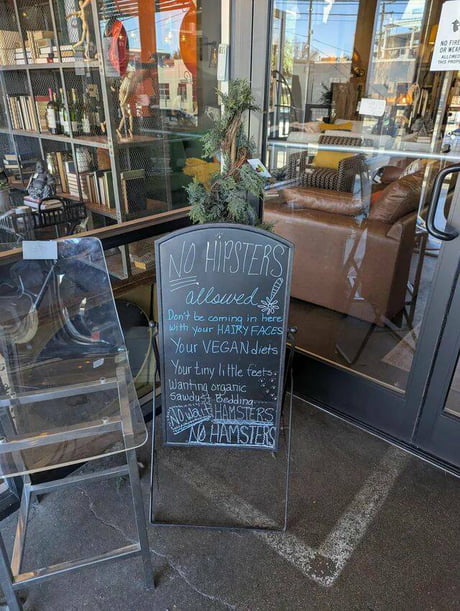 NO HIPSTERS
allowed
Don't be coming in here
with your HAIRY FACES
Your VEGAN diets
Your tiny little feets
Wanting organic
sawdust Bedding
NO wait HAMSTERS
NO HAMSTERS
NO FIRE
OR WEA
ALLOWED
THIS PRO